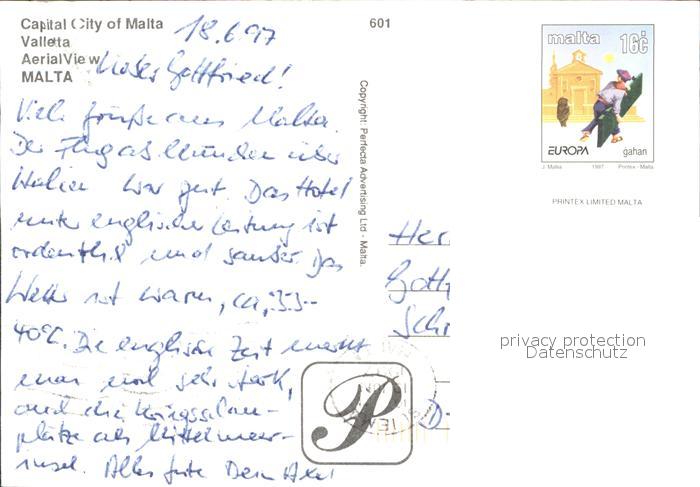 Capital City of Malta
Valletta
Aerial View
MALTA
601
18.6.97
Lieber Gottfried!
Viele Grüße aus Malta.
Der Flug ab München über
Italien war gut. Das Hotel
unter englischer Leitung ist
ordentlich und sauber. Das
Wetter ist warm, ca. 35-
40°C. Die englische Zeit merkt
man noch sehr stark,
und die Kriegsschau-
plätze als Mittelmeer-
insel. Alles Gute Dein Axel
Copyright: Perfecta Advertising Ltd - Malta.
malta 16c
EUROPA gahan
J. Malta 1997 Printex - Malta
PRINTEX LIMITED MALTA
Her
Gott
Sch
D-
P
privacy protection
Datenschutz